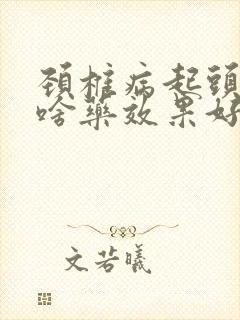 颈椎病起頭
啥藥效果好
文若曦